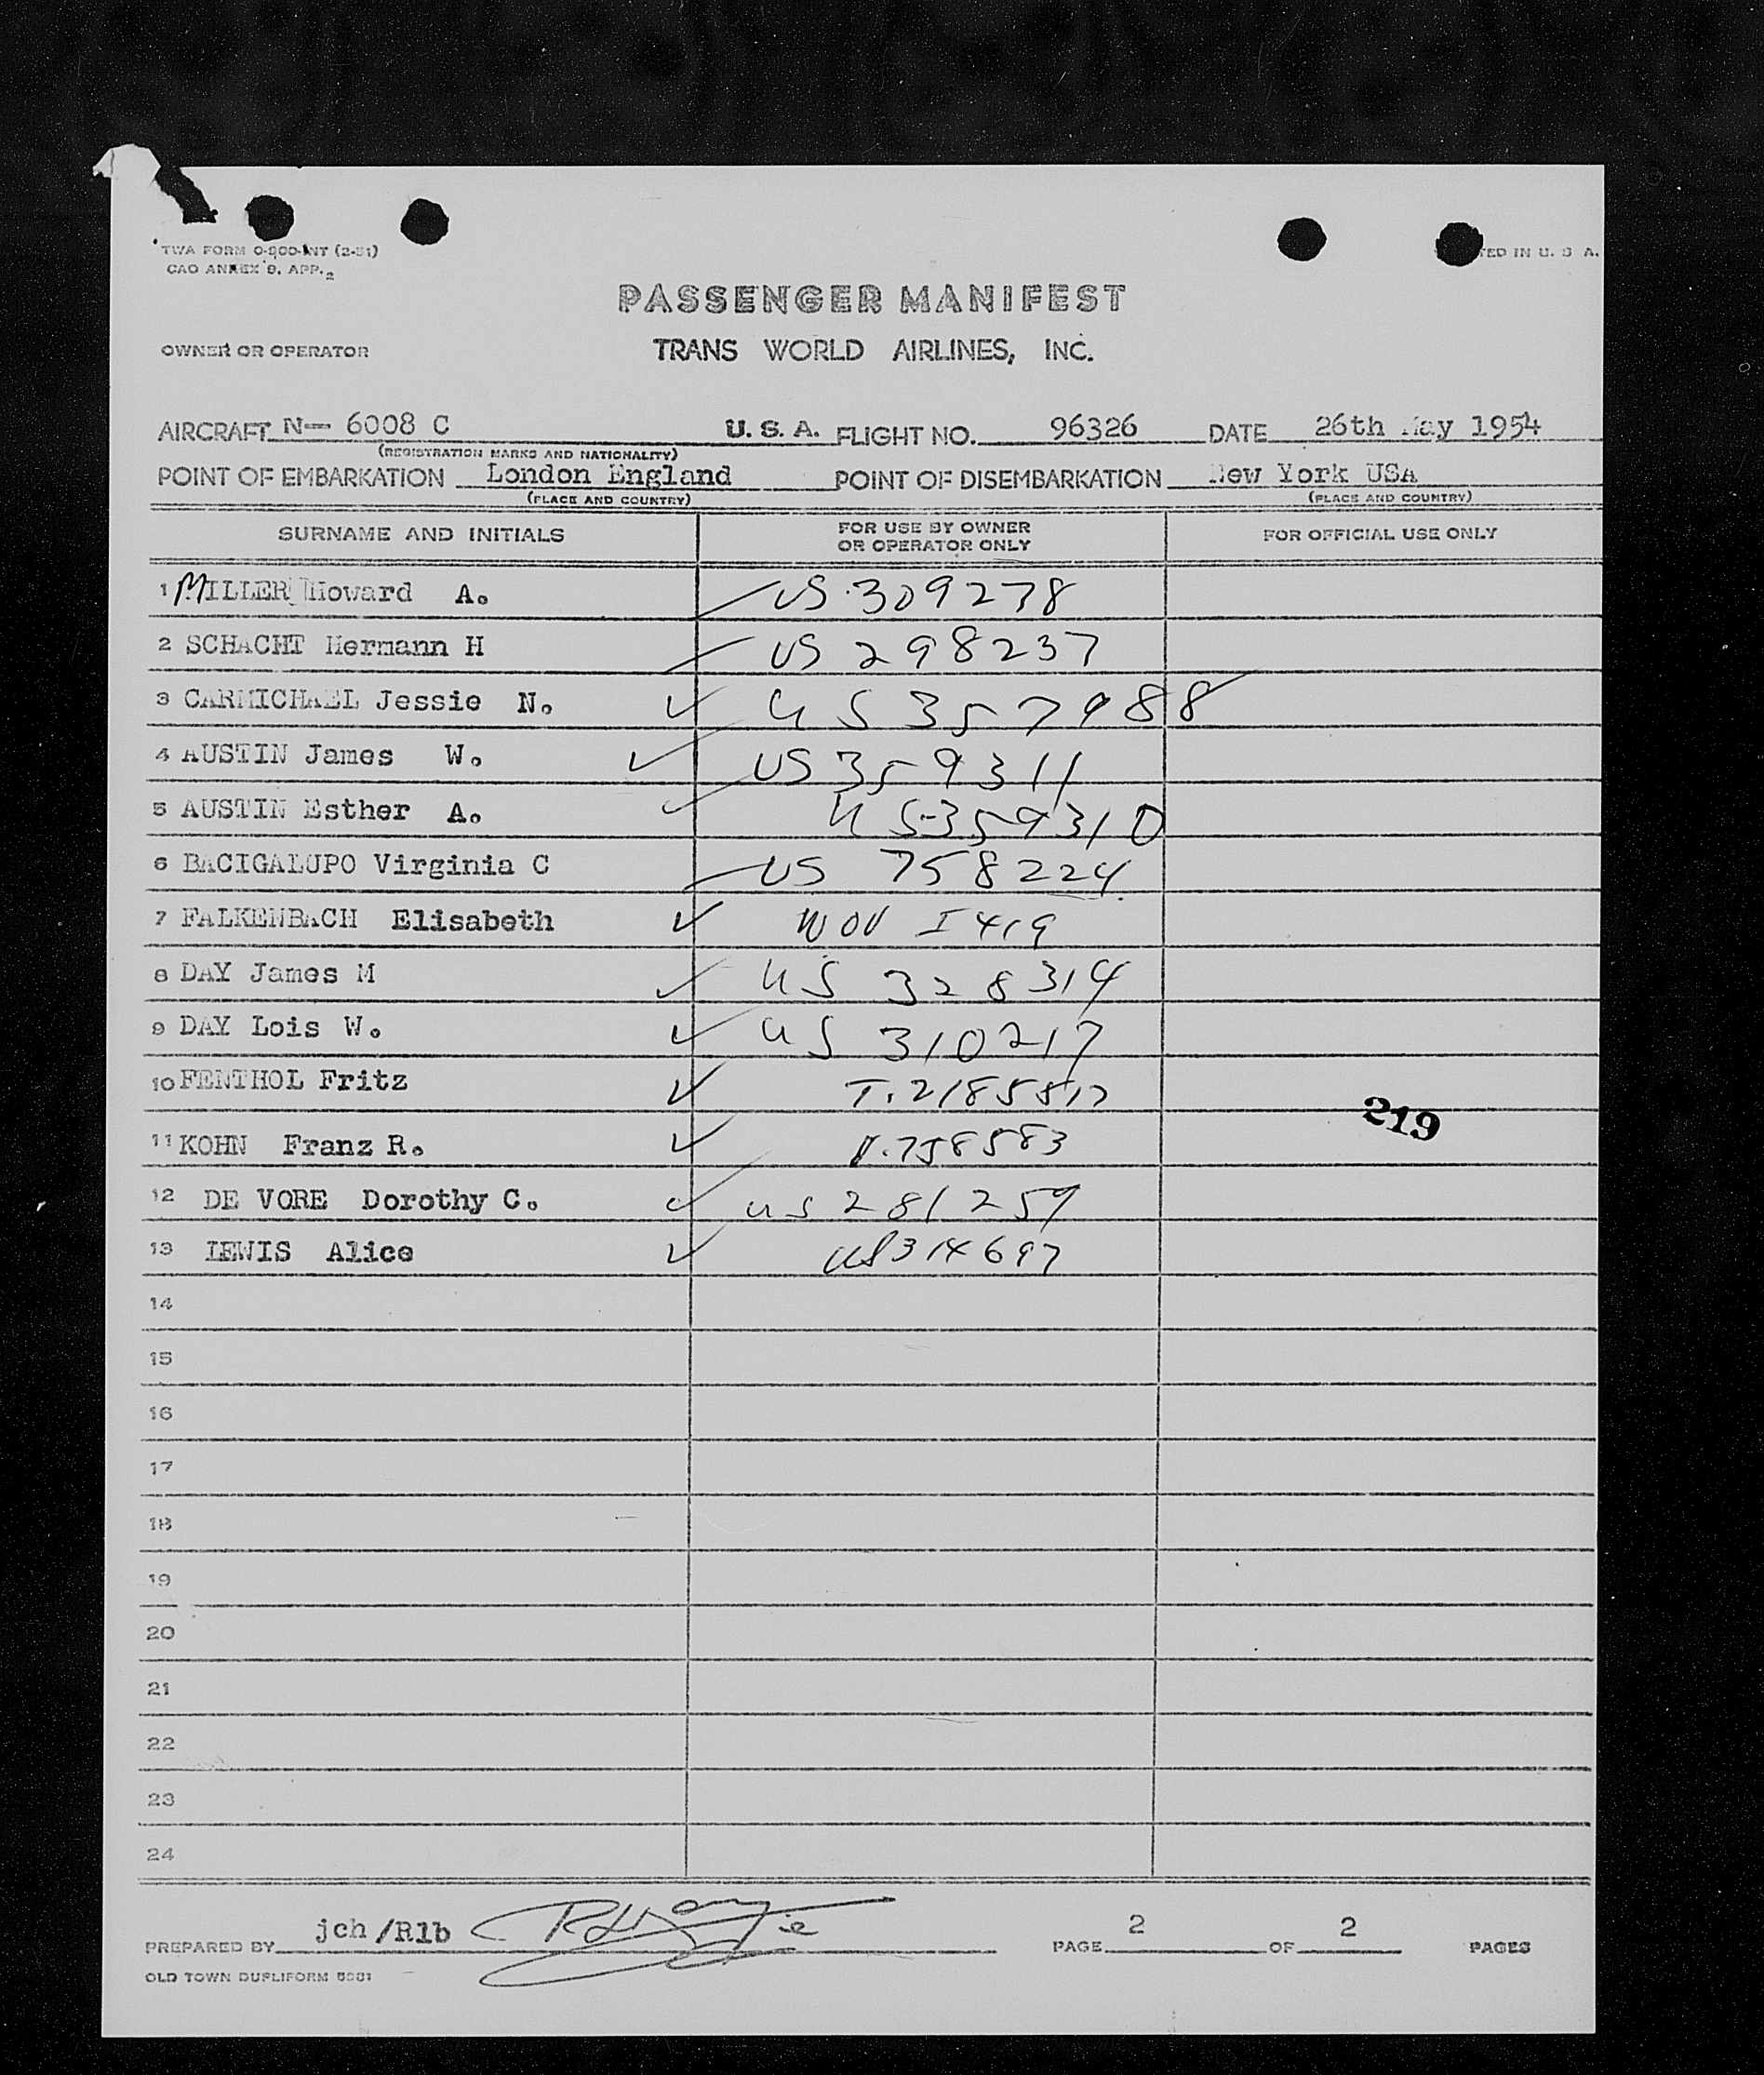 TWA FORM 0-900-INT (2-51)
CAO ANNEX 9, APP. 2
TED IN U. S A.
PASSENGER MANIFEST
OWNER OR OPERATOR TRANS WORLD AIRLINES, INC.
AIRCRAFT N-- 6008 C U. S. A. FLIGHT NO. 96326 DATE 26th May 1954
(REGISTRATION MARKS AND NATIONALITY)
POINT OF EMBARKATION London England POINT OF DISEMBARKATION New York USA
(PLACE AND COUNTRY) (PLACE AND COUNTRY)
SURNAME AND INITIALS FOR USE BY OWNER OR OPERATOR ONLY FOR OFFICIAL USE ONLY
1 MILLER Howard A. US 309278
2 SCHACHT Hermann H US 298237
3 CARMICHAEL Jessie N. ✓ US 357988
4 AUSTIN James W. ✓ US 359311
5 AUSTIN Esther A. ✓ US 359310
6 BACIGALUPO Virginia C US 758224
7 FALKENBACH Elisabeth ✓ I 419
8 DAY James M ✓ US 328314
9 DAY Lois W. ✓ US 310217
10 FENTHOL Fritz ✓
219
11 KOHN Franz R. ✓ 758583
12 DE VORE Dorothy C. ✓ US 281259
13 LEWIS Alice ✓ US 314697
14
15
16
17
18
19
20
21
22
23
24
PREPARED BY jch/Rlb PAGE 2 OF 2 PAGES
OLD TOWN DUPLIFORM